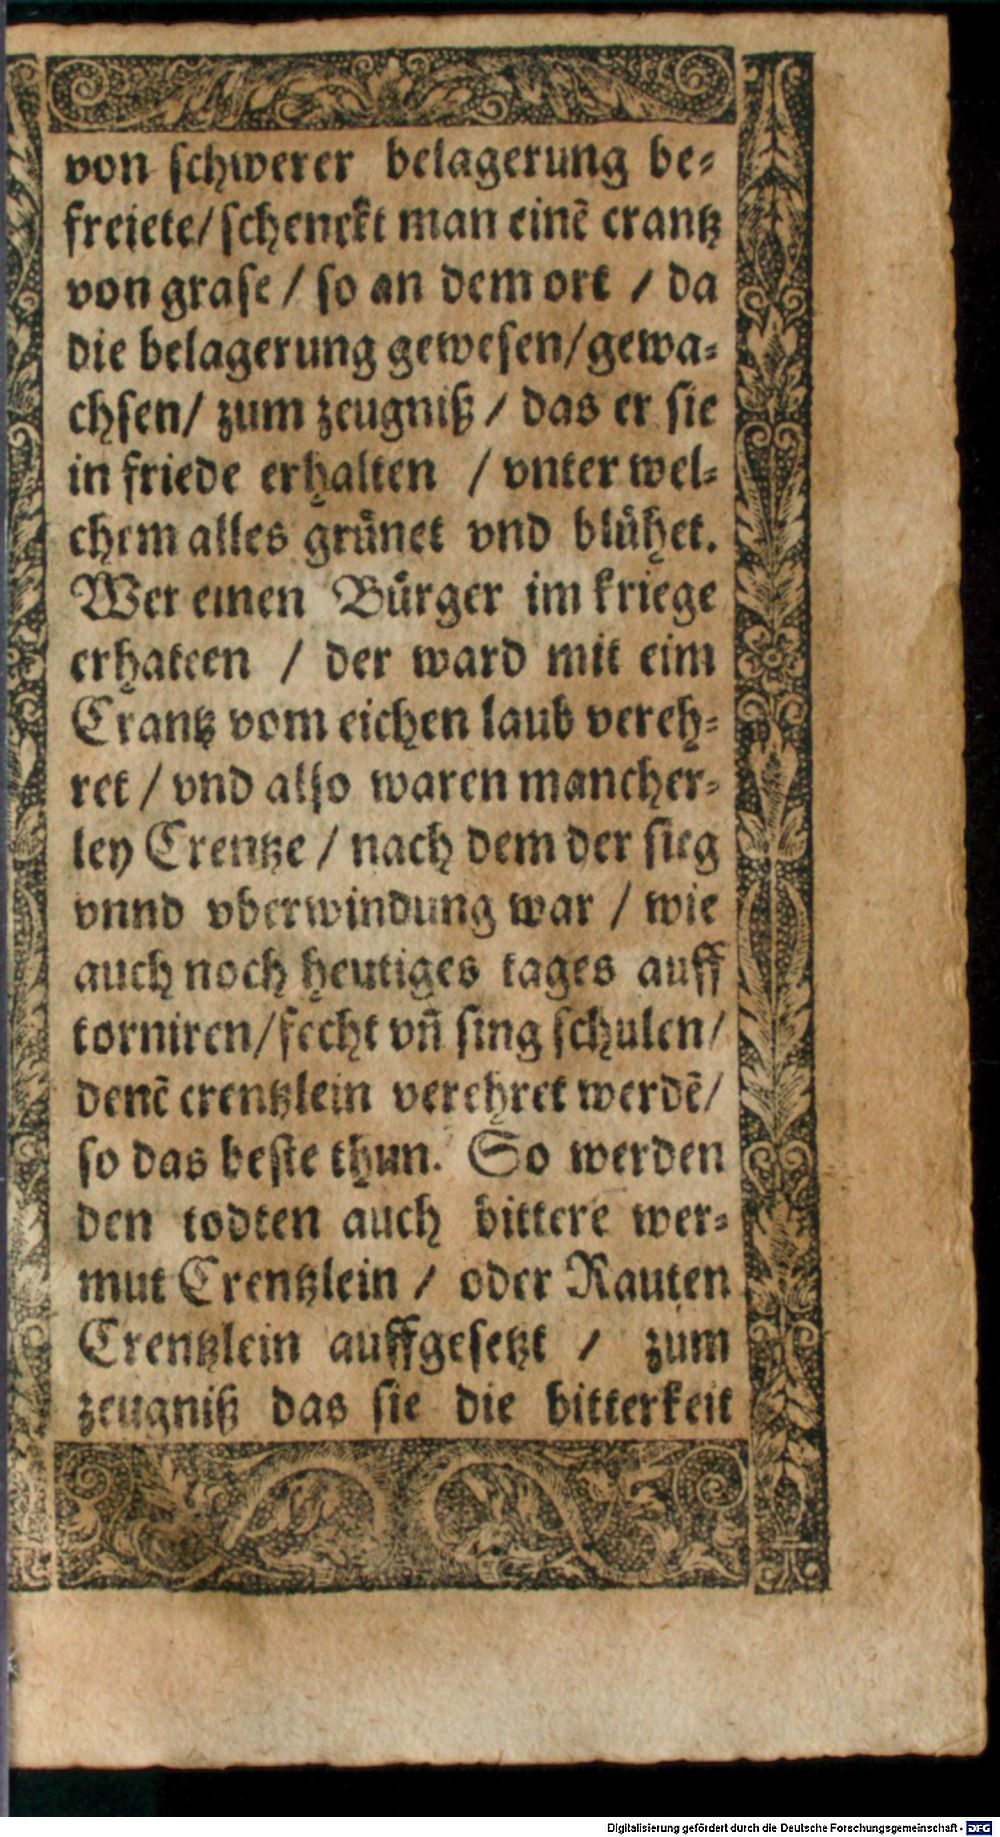 von schwerer belagerung be⸗
freiete/ schenckt man einē crantz
von grase / so an dem ort / da
die belagerung gewesen/ gewa⸗
chsen/ zum zeugniß / das er sie
in friede erhalten / vnter wel⸗
chem alles grůnet vnd blůhet.
Wer einen Bůrger im kriege
erhalten / der ward mit eim
Crantz vom eichen laub vereh⸗
ret / vnd also waren mancher⸗
ley Crentze / nach dem der sieg
vnnd vberwindung war / wie
auch noch heutiges tages auff
torniren/ fecht vñ sing schulen/
denē crentzlein verehret werdē/
so das beste thun. So werden
den todten auch bittere wer⸗
mut Crentzlein / oder Rauten
Crentzlein auffgesetzt / zum
zeugniß das sie die bitterkeit
Digitalisierung gefördert durch die Deutsche Forschungsgemeinschaft - DFG